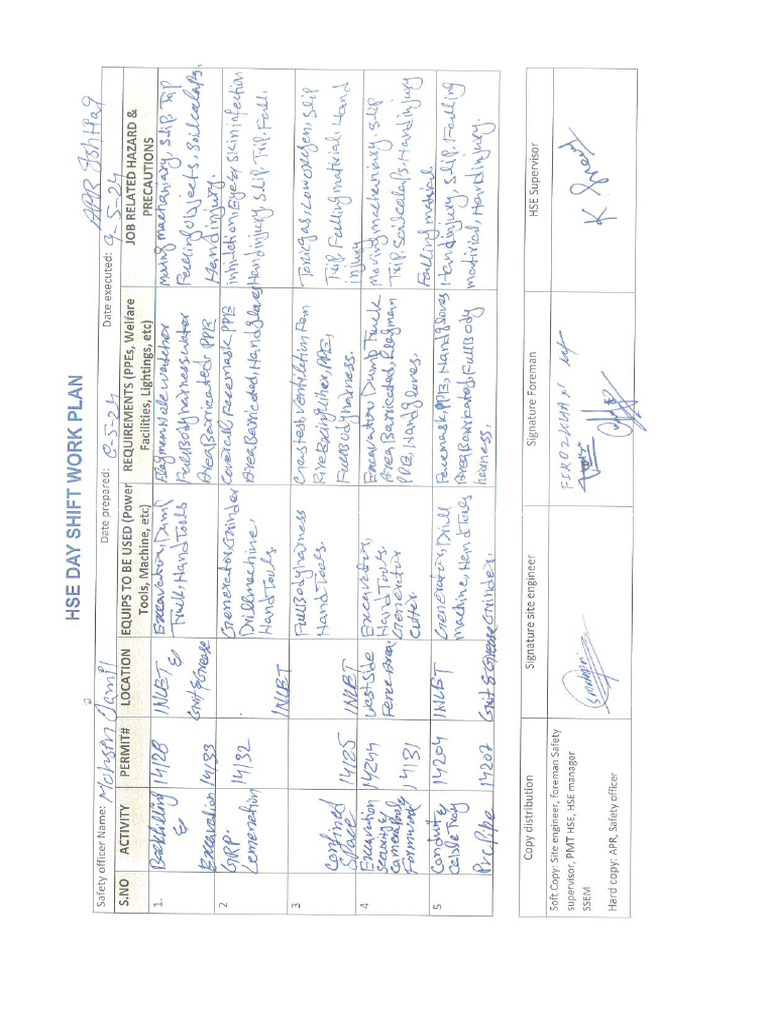 HSE DAY SHIFT WORK PLAN
Safety officer Name: Mohsin Jamil Date prepared: 9-5-24 Date executed: 9-5-24 APR Ishtiaq
S.NO ACTIVITY PERMIT# LOCATION EQUIPS TO BE USED (Power Tools, Machine, etc) REQUIREMENTS (PPEs, Welfare Facilities, Lightings, etc) JOB RELATED HAZARD & PRECAUTIONS
1. Backfilling & Excavation
14128
14133
INLET & Grit & Grease
Excavator, Dump
Truck, Hand Tools
Flagman, Hole watcher
Full Body harness, water
Area Barricated, PPE
Moving machaniary, Slip, Trip
Falling objects, Soilcalaps,
Hand injury.
2 GRP. Lemenation
14132
INLET
Generator, Grinder
Drill machine,
Hand Tools
Coverall Facemask PPE
Area Barricated, Hand gloves
inhilction, Eyes, Skin infection
Hand injury, Slip Trip, Fall,
3 Confined Space
14125
INLET
Full Body harness
Hand Tools.
Gas test, Ventilation Fan
Fire Extinguiher, PPE,
Full Body harness.
Toxic gas, Low oxegen, Slip
Trip, Falling material, Hand
injury
4 Excavation
security &
camera Pools
Formwork
14244
14131
West Side
Fence Area.
Excavator,
Hand Tools
Generator
Cutter
Excavator Dump Truck
Area Barricated, Flagman
PPE, Hand gloves.
Moving machaniary, Slip
Trip, Soilcalaps, Hand injury
Falling material.
5 Conduit &
Cable Tray
Pvc Pipe
14204
14207
INLET
Grit & Grease
Generator, Drill
machine, Hand Tools
Grinder.
Facemask, PPE, Hand gloves
Area Barricated, Full Body
harness,
Hand injury, Slip, Falling
matirial, Hand injury.
Copy distribution Signature site engineer Signature Foreman HSE Supervisor
Soft Copy: Site engineer, foreman Safety
supervisor, PMT HSE, HSE manager
SSEM
Hard copy: APR, Safety officer